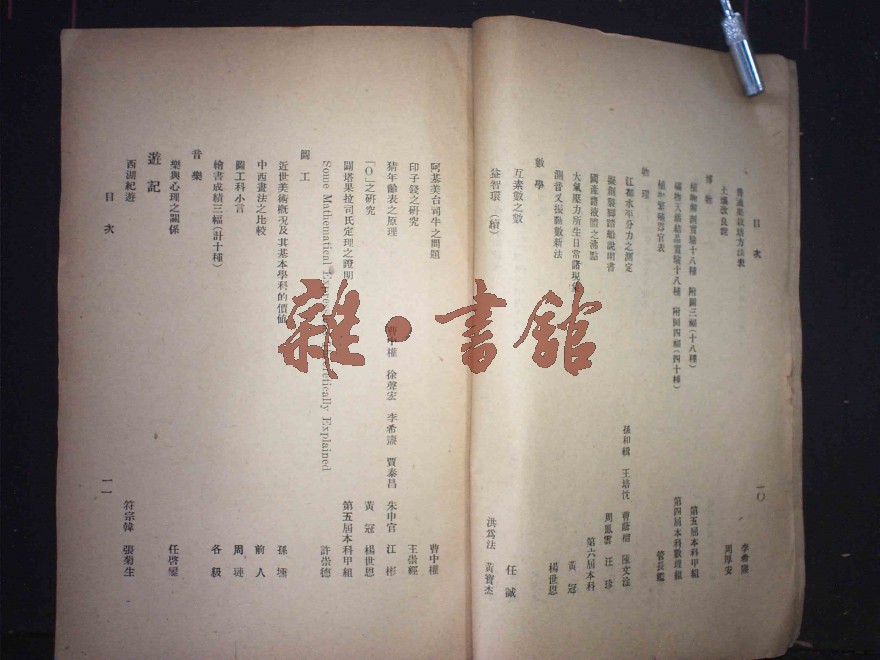 目次
土壤改良說
李希賡
周厚安
博物
植物解剖實驗十八種 附圖三幅(十八種)
第五屆本科甲組
礦物天然結晶實驗十八種 附圖四幅(四十種)
第四屆本科數理組
植物繁殖器官表
管長鑑
物理
江都水平分力之測定
孫和楫 王培 曹 陳文
說明書
周鳳雲 汪珍
國產諸液體之沸點
第六屆本科
大氣壓力所生日常諸現象
黃冠
測音叉振動數新法
楊世恩
數學
互素數之數
任誠
益智環(續)
洪爲法 黃寶杰
一〇
阿基美台司牛之問題
曹中權
印子錢之研究
王崇經
猜年齡表之原理
曹中權 徐聲宏 李希賡 賈泰昌 朱中官 江彬
「0」之研究
黃冠 楊世恩
闢塔果拉司氏定理之證明
第五屆本科甲組
Some Mathematical Expres etically Explained
許崇德
圖工
近世美術概況及其基本學科的價値
孫
中西畫法之比較
前人
圖工科小言
周
繪畫成績三幅(計十種)
各級
音樂
樂與心理之關係
任啓
遊記
西湖紀遊
符宗韓 張菊生
目次
一一
雜·書館